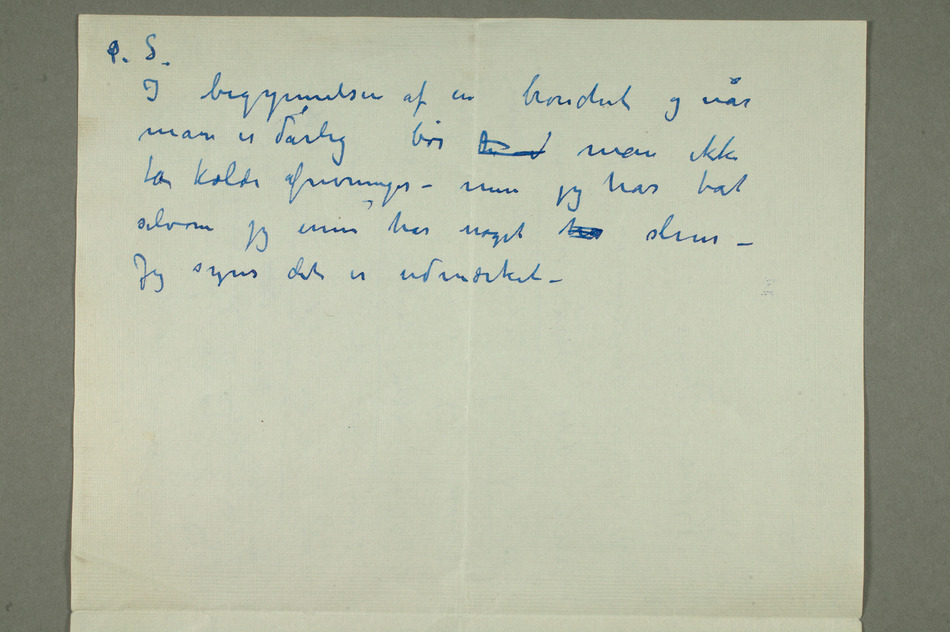 P. S.
I begynnelsen af en bronchit og når
man er dårlig bør man ikke
ta kolde afrivninger – men jeg har tat
selvom jeg ennu har noget slim –
Jeg synes det er udmærket –